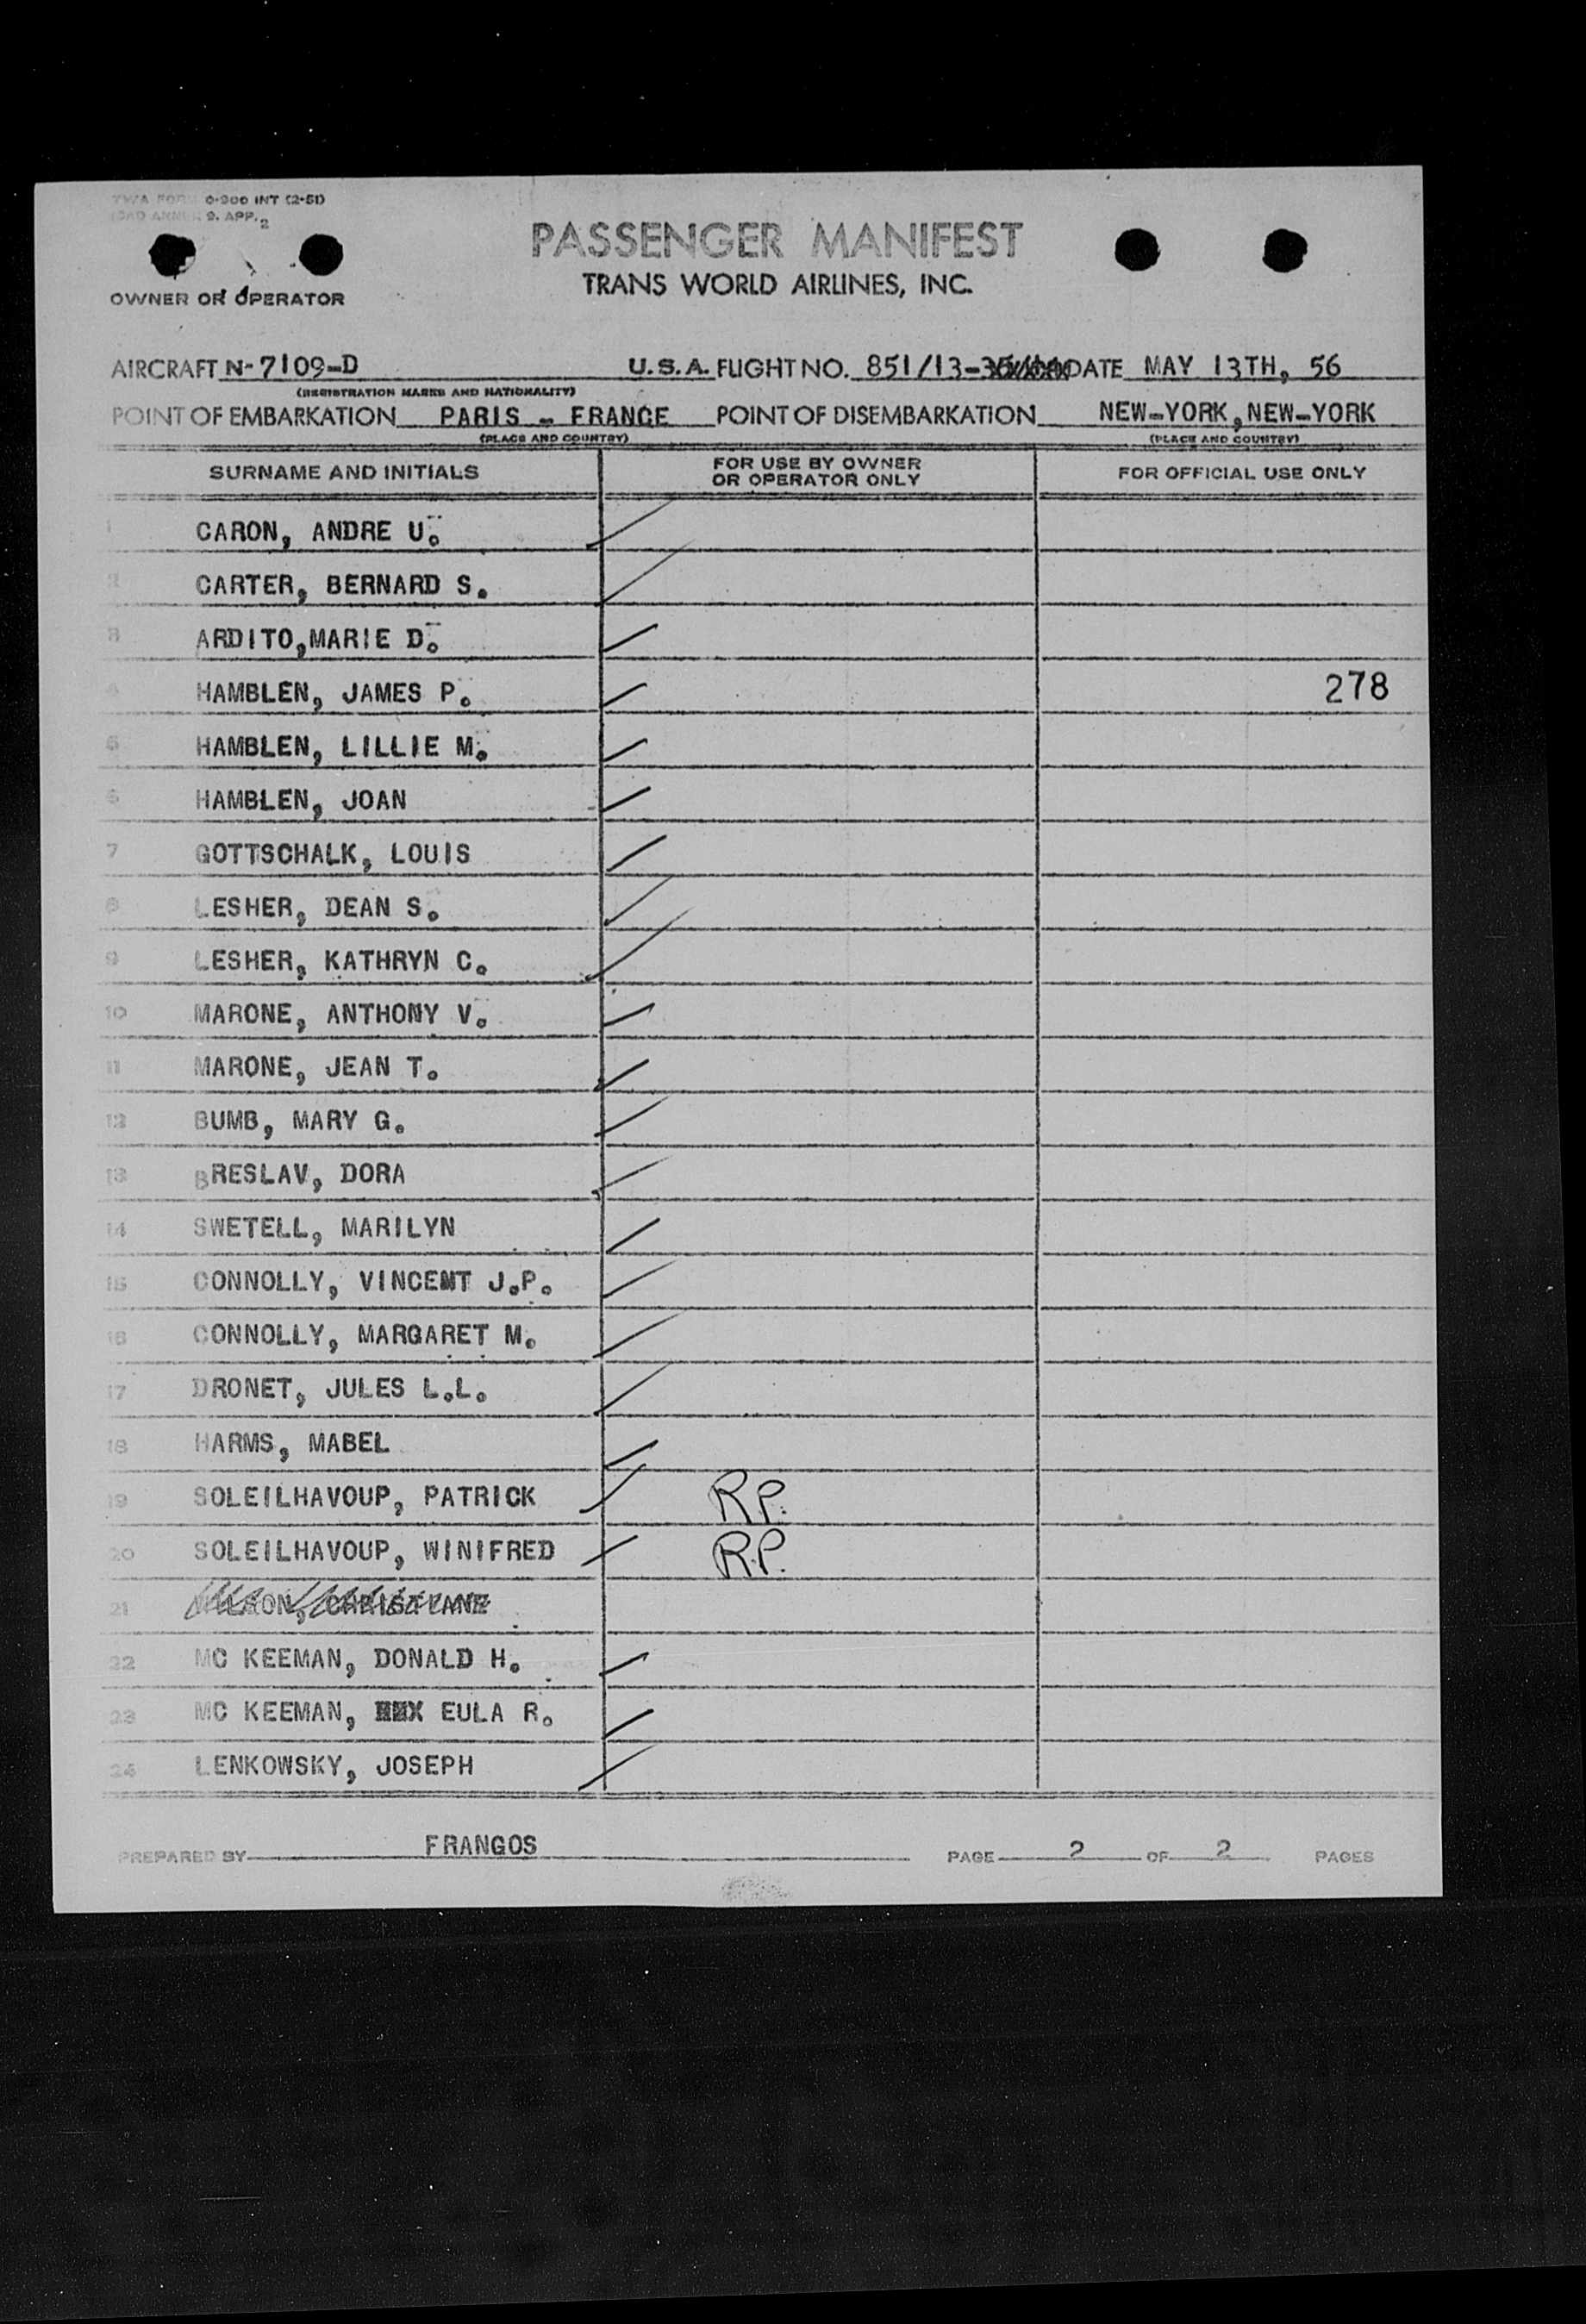 TWA FORM 0-900 INT (2-51)
9. APP. 2
PASSENGER MANIFEST
TRANS WORLD AIRLINES, INC.
OWNER OR OPERATOR
AIRCRAFT N-7109-D U.S.A. FLIGHT NO. 851/13- DATE MAY 13TH, 56
(REGISTRATION MARKS AND NATIONALITY)
POINT OF EMBARKATION PARIS - FRANCE POINT OF DISEMBARKATION NEW-YORK, NEW-YORK
(PLACE AND COUNTRY) (PLACE AND COUNTRY)
SURNAME AND INITIALS FOR USE BY OWNER OR OPERATOR ONLY FOR OFFICIAL USE ONLY
1 CARON, ANDRE U.
2 CARTER, BERNARD S.
3 ARDITO,MARIE D.
4 HAMBLEN, JAMES P. 278
5 HAMBLEN, LILLIE M.
6 HAMBLEN, JOAN
7 GOTTSCHALK, LOUIS
8 LESHER, DEAN S.
9 LESHER, KATHRYN C.
10 MARONE, ANTHONY V.
11 MARONE, JEAN T.
12 BUMB, MARY G.
13 BRESLAV, DORA
14 SWETELL, MARILYN
15 CONNOLLY, VINCENT J.P.
16 CONNOLLY, MARGARET M.
17 DRONET, JULES L.L.
18 HARMS, MABEL
19 SOLEILHAVOUP, PATRICK R.P.
20 SOLEILHAVOUP, WINIFRED R.P.
21
22 MC KEEMAN, DONALD H.
23 MC KEEMAN, EULA R.
24 LENKOWSKY, JOSEPH
PREPARED BY FRANGOS PAGE 2 OF 2 PAGES